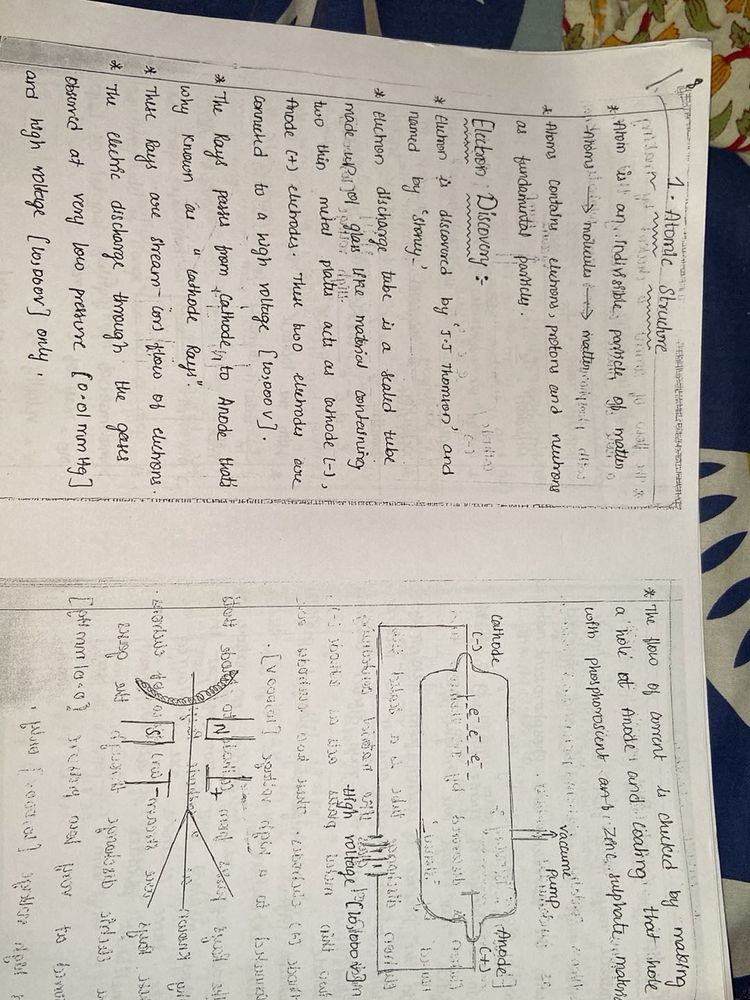 1. Atomic Structure
* Atom is an indivisible particle of matter
Atoms → molecules → matter
* Atoms contains electrons, protons and neutrons
as fundamental particles.
Electron Discovery :-
* Electron is discovered by 'J.J Thomson' and
named by 'Stoney.'
* Electron discharge tube is a sealed tube
made up of glass like material containing
two thin metal plates acts as cathode (-),
Anode (+) electrodes. These two electrodes are
connected to a high voltage [10,000V].
* The Rays passes from Cathode to Anode that's
why known as "cathode Rays".
* These Rays are stream-ions flow of electrons.
* The electric discharge through the gases
observed at very low pressure [0.01 mm Hg]
and high voltage [10,000V] only.
* The flow of current is checked by making
a hole at Anode and coating that hole
with phosphorescent
Zinc sulphate
cathode
(-)
e- e- e-
vacume
pump
Anode
(+)
High voltage [10,000V]
N
S
+
-